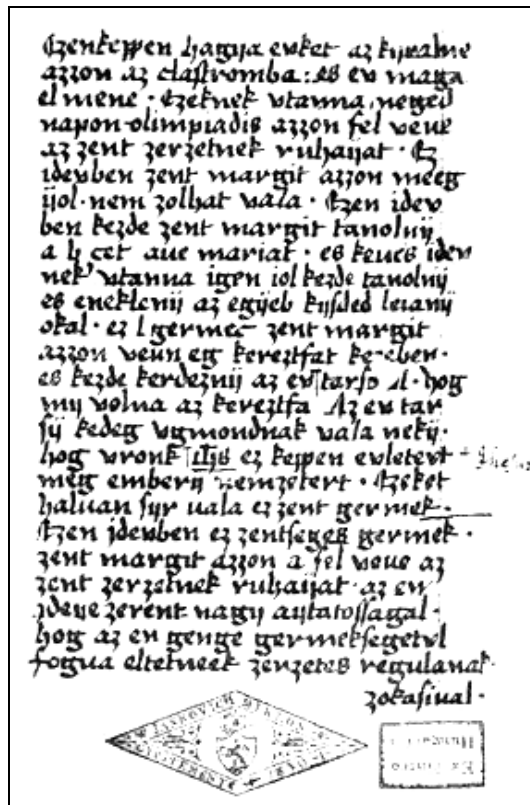 Ezenkeppen hagija evket az kyralne
azzon az claſtromba : es ev maga
el mene · Ezeknek vtanna neged
napon olimpiadis azzon fel veve
az zent zerzetnek ruhaijat · Ez
idevben zent margit azzon meeg
ijol · nem zolhat vala · Ezen idev
ben kezde zent margit tanolnij
a b cet aue mariat · es keues idev
nek vtanna igen iol kezde tanolnij
es eneklenij az egijeb kijſded leianij
okal · ez germec zent margit
azzon veun eg kereztfat kezeben ·
es kezde kerdeznij az ev tarſ hog
mij volna az kereztfa Az ev tar
ſij kedeg vgmondnak vala nekij ·
hog vronk ez keppen evletett
meg emberij nemzetert · Ezeket
haluan ſyr uala ez zent germek ·
Ezen jdevben ez zentſeges germek ·
zent margit azzon a fel veue az
zent zerzetnek ruhaijat · az en
jdeije zerent nagij aijtatoſſagal ·
hog az en genge germekſegetvl
fogua eltetneek zerzetes regulanak
zokaſiual ·
JANKOVICH MIKLOS